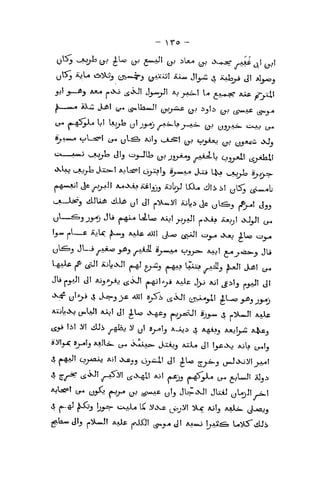 - ١٣٥ -
ابن ابى غُفَيْر محمد بن معاذ بن اليسع بن صالح بن طريف وكان
وصوله الى قرطبة في شوال سنة اثنتين وخمسين وثلاث ماية وكان
المترجم عنه بجميع ما اخبر به الرسول الذى قدم معه وهو ابو
موسى عيسى بن داود بن عشرين السطاسى من اهل شلة مسلم
من بيت خيرون بن خير فاخبر زمور ان طريفا ابا ملوكهم من
ولد شمعون بن يعقوب بن اسحاق وانه كان من اصحاب ميسرة
المطغرى المعروف بالحقير ومغرور بن طالوت والى طريف نسبت
جزيرة طريف فلما قتل ميسرة وافترق اصحابه احتل طريف ببلد
تامسنى وكان اذ ذاك ملكا لزناتة وزواغة فقدمه البربر على انفسهم
وولى امرهم وكان على ديانة الاسلام الى ان هلك هنالك وتخلف
من الولد اربعة فقدم البربر ابنه صالحا منهم قال زمور وكان
موت صالح بعد موت النبى صلى الله عليه وسلم بماية عام سوا
قال وحضر مع ابيه حروب ميسرة الحقير وهو صغير قال وكان
من اهل العلم والخير فيهم تنبّا فيهم وشرع لهم الديانة التى هم عليها
الى اليوم وادعى انه نزل عليه قرانهم الذى يقرءونه الى اليوم قال
زمور وهو صالح المومنين الذى ذكره الله عز وجل في قران محمد
عليه السلام في سورة التحريم وعهد صالح الى ابنه الياس بديانته
وعلمه شرايعه وفقهه في دينه وامره ان لا يظهر ذلك الا اذا قوى
وامن فانه يدعو الى ملته ويقتل حينئذ من خالفه وامره بموالاة
امير الاندلس وخرج صالح الى المشرق ووعده انه ينصرف اليهم في
دولة السابع من ملوكهم وزعم انه المهدى الاكبر الذى يخرج في
اخر الزمان لقتال الدجال وان عيسى بن مريم يكون من اصحابه
ويصلى خلفه وانه يملا الارض عدلا كما مليت جورا وتكلم لهم في
ذلك كلاما كثيرا نسبه الى موسى الكليم عليه السلام والى سطيح